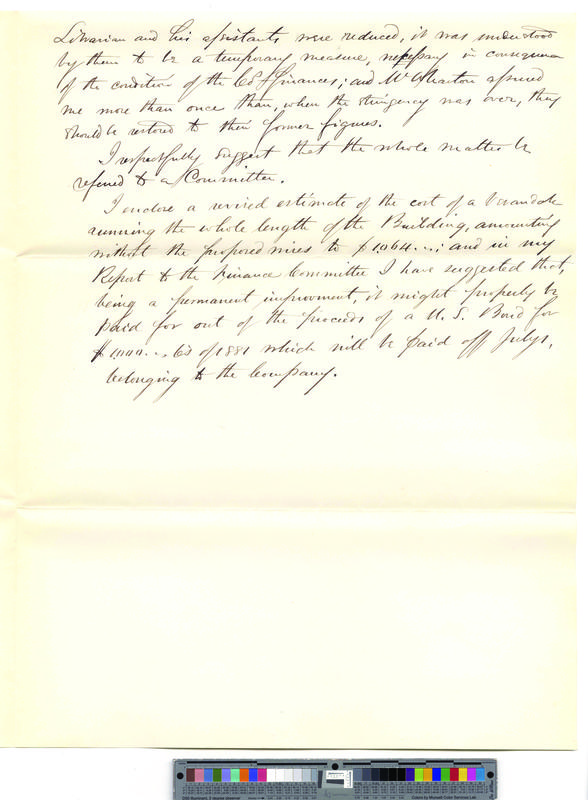 Librarian and his assistants were reduced, it was understood
by them to be a temporary measure, necessary in consequence
of the condition of the Co's finances; and Mr Wharton assured
me more than once that, when the stringency was over, they
should be restored to their former figures.
I respectfully suggest that the whole matter be
referred to a Committee.
I enclose a revised estimate of the cost of a Verandah
running the whole length of the Building, amounting
without the proposed wires to $1,064...; and in my
Report to the Finance Committee I have suggested that,
being a permanent improvement, it might properly be
paid for out of the proceeds of a U. S. Bond for
$1,000... 6s of 1881 which will be paid off July 1,
belonging to the Company.